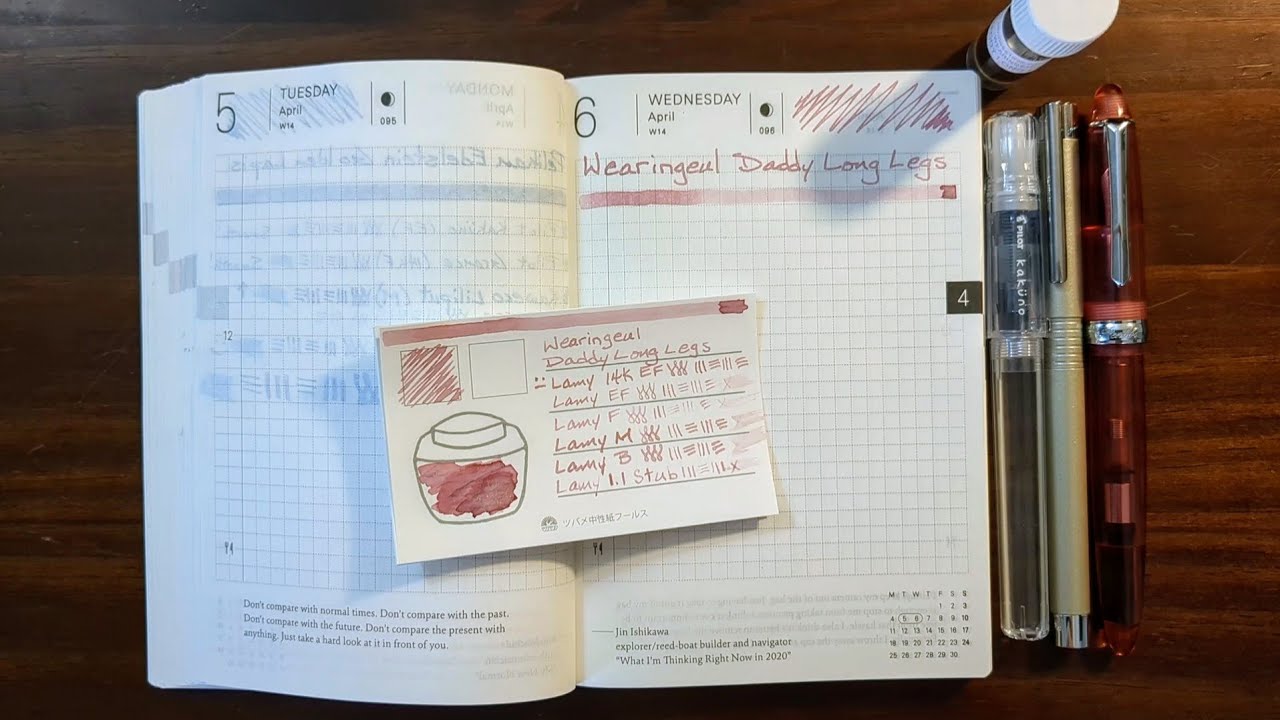 5
TUESDAY
April
W14
095
12
Don't compare with normal times. Don't compare with the past.
Don't compare with the future. Don't compare the present with
anything. Just take a hard look at it in front of you.
6
WEDNESDAY
April
W14
096
Wearingeul Daddy Long Legs
4
Wearingeul
Daddy Long Legs
Lamy 14K EF
Lamy EF
Lamy F
Lamy M
Lamy B
Lamy 1.1 Stub
ツバメ中性紙フールス
Jin Ishikawa
explorer/reed-boat builder and navigator
"What I'm Thinking Right Now in 2020"
M T W T F S S
1 2 3
4 5 6 7 8 9 10
11 12 13 14 15 16 17
18 19 20 21 22 23 24
25 26 27 28 29 30
PILOT kakuno